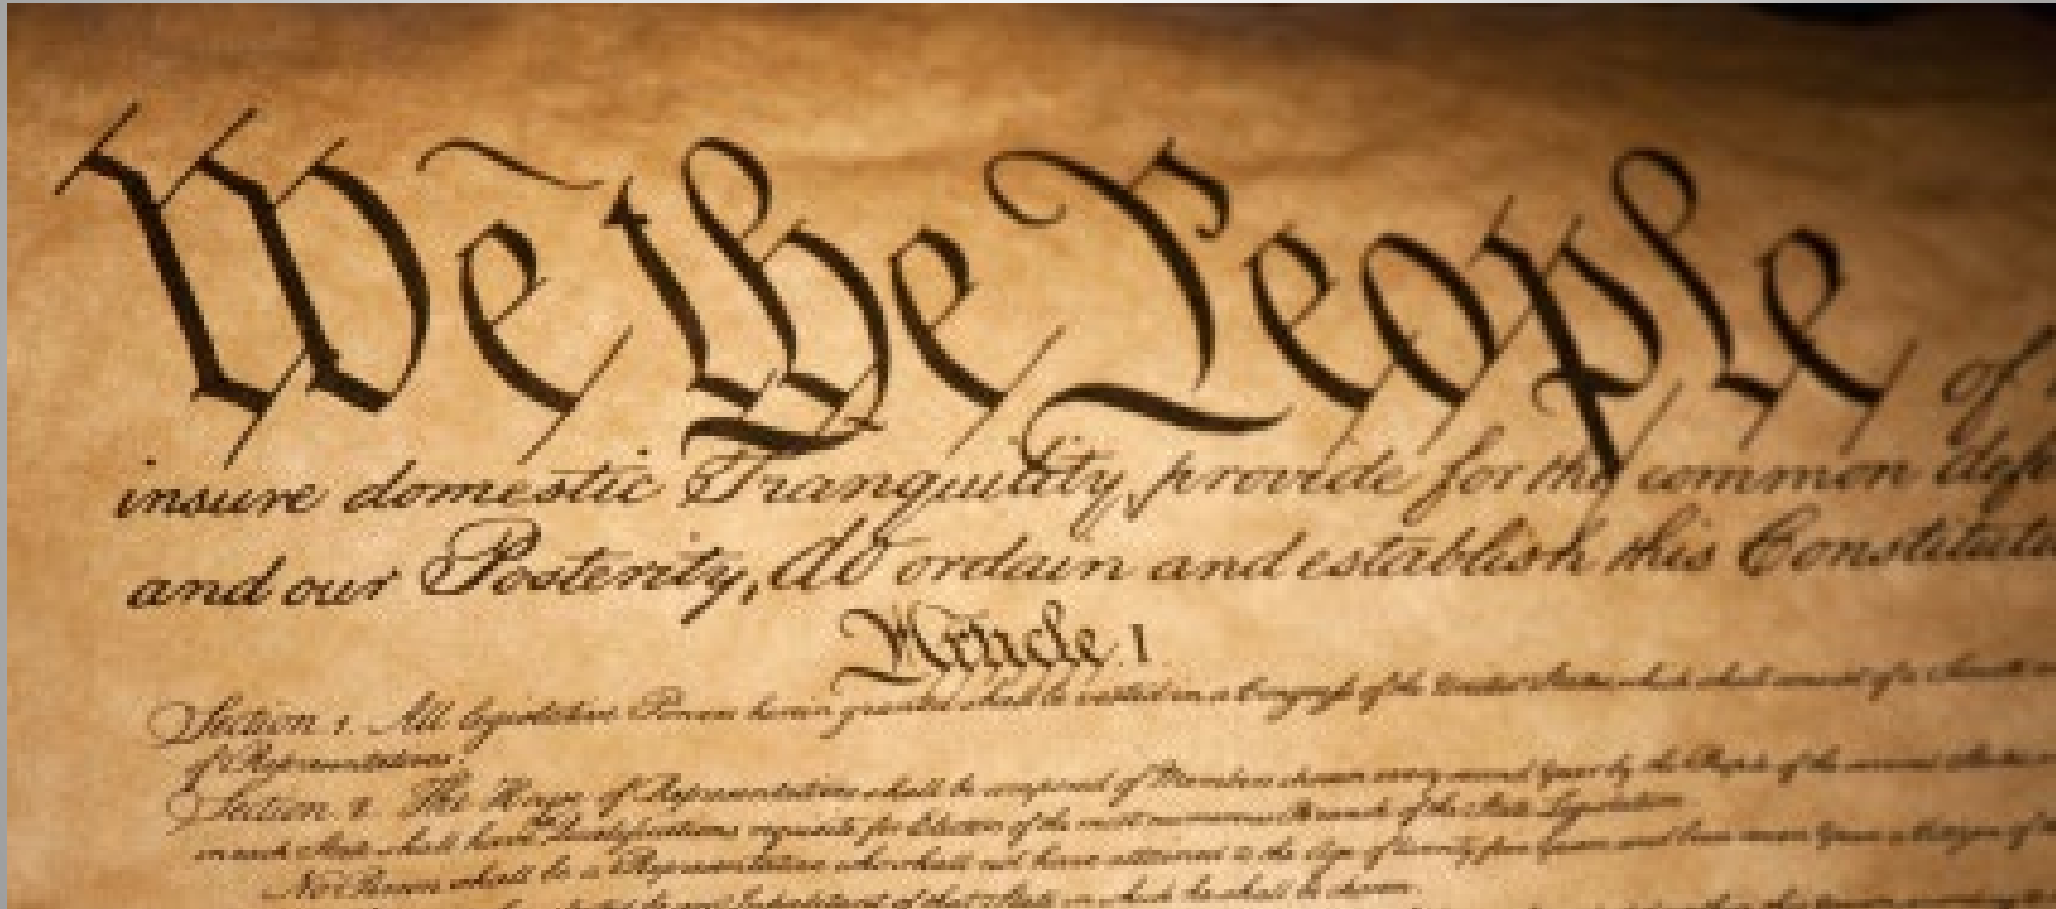 We the People of
insure domestic Tranquility, provide for the common defe
and our Posterity, do ordain and establish this Constitutio
Article. I.
Section. 1. All legislative Powers herein granted shall be vested in a Congress of the United States, which shall consist of a Senate
of Representatives.
Section. 2. The House of Representatives shall be composed of Members chosen every second Year by the People of the several States
in each State shall have Qualifications requisite for Electors of the most numerous Branch of the State Legislature.
No Person shall be a Representative who shall not have attained to the Age of twenty five Years, and been seven Years a Citizen of
Inhabitant of that State in which he shall be chosen.